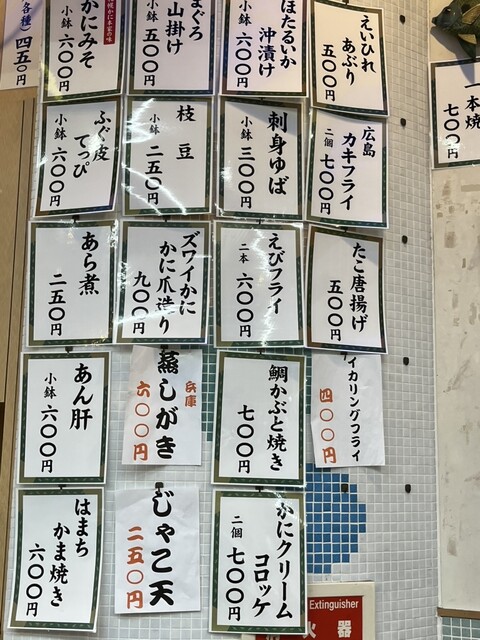 えいひれ
あぶり
五〇〇円
ほたるいか
沖漬け
小鉢 六〇〇円
まぐろ
山掛け
小鉢 五〇〇円
かにみそ
小鉢 六〇〇円
各種)四五〇円
一本焼
七〇〇円
広島
カキフライ
二個 七〇〇円
刺身ゆば
小鉢 三〇〇円
枝豆
小鉢 二五〇円
ふぐ皮
てっぴ
小鉢 六〇〇円
たこ唐揚げ
五〇〇円
えびフライ
二本 六〇〇円
ズワイかに
かに爪造り
九〇〇円
あら煮
二五〇円
イカリングフライ
四〇〇円
鯛かぶと焼き
七〇〇円
兵庫
蒸しがき
六〇〇円
あん肝
小鉢 六〇〇円
かにクリーム
コロッケ
二個 七〇〇円
じゃこ天
二五〇円
はまち
かま焼き
六〇〇円
Extinguisher
火 器